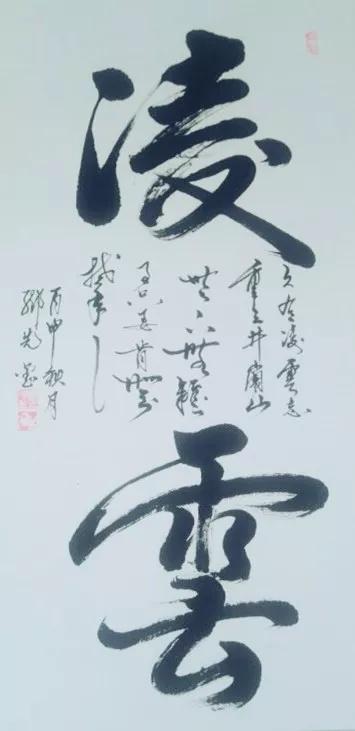 凌雲
久有凌雲志
重上井岡山
世上無難
事只要肯登
攀
丙申秋月